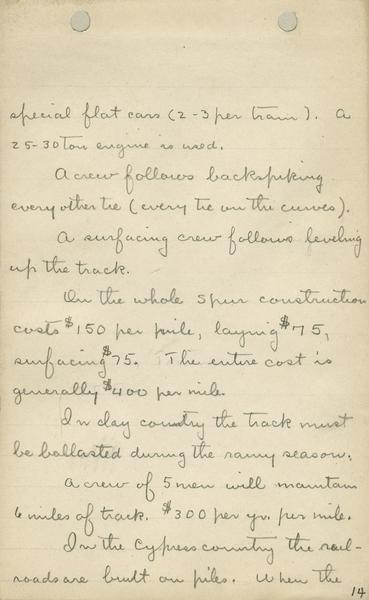 special flat cars (2-3 per train). A
25-30 ton engine is used.
A crew follows backspiking
every other tie (every tie on the curves).
A surfacing crew follows leveling
up the track.
On the whole spur construction
costs $150 per mile, laying $75,
surfacing $75. The entire cost is
generally $400 per mile.
In clay country the track must
be ballasted during the rainy season.
A crew of 5 men will maintain
6 miles of track. $300 per yr. per mile.
In the Cypress country the rail-
roads are built on piles. When the
14